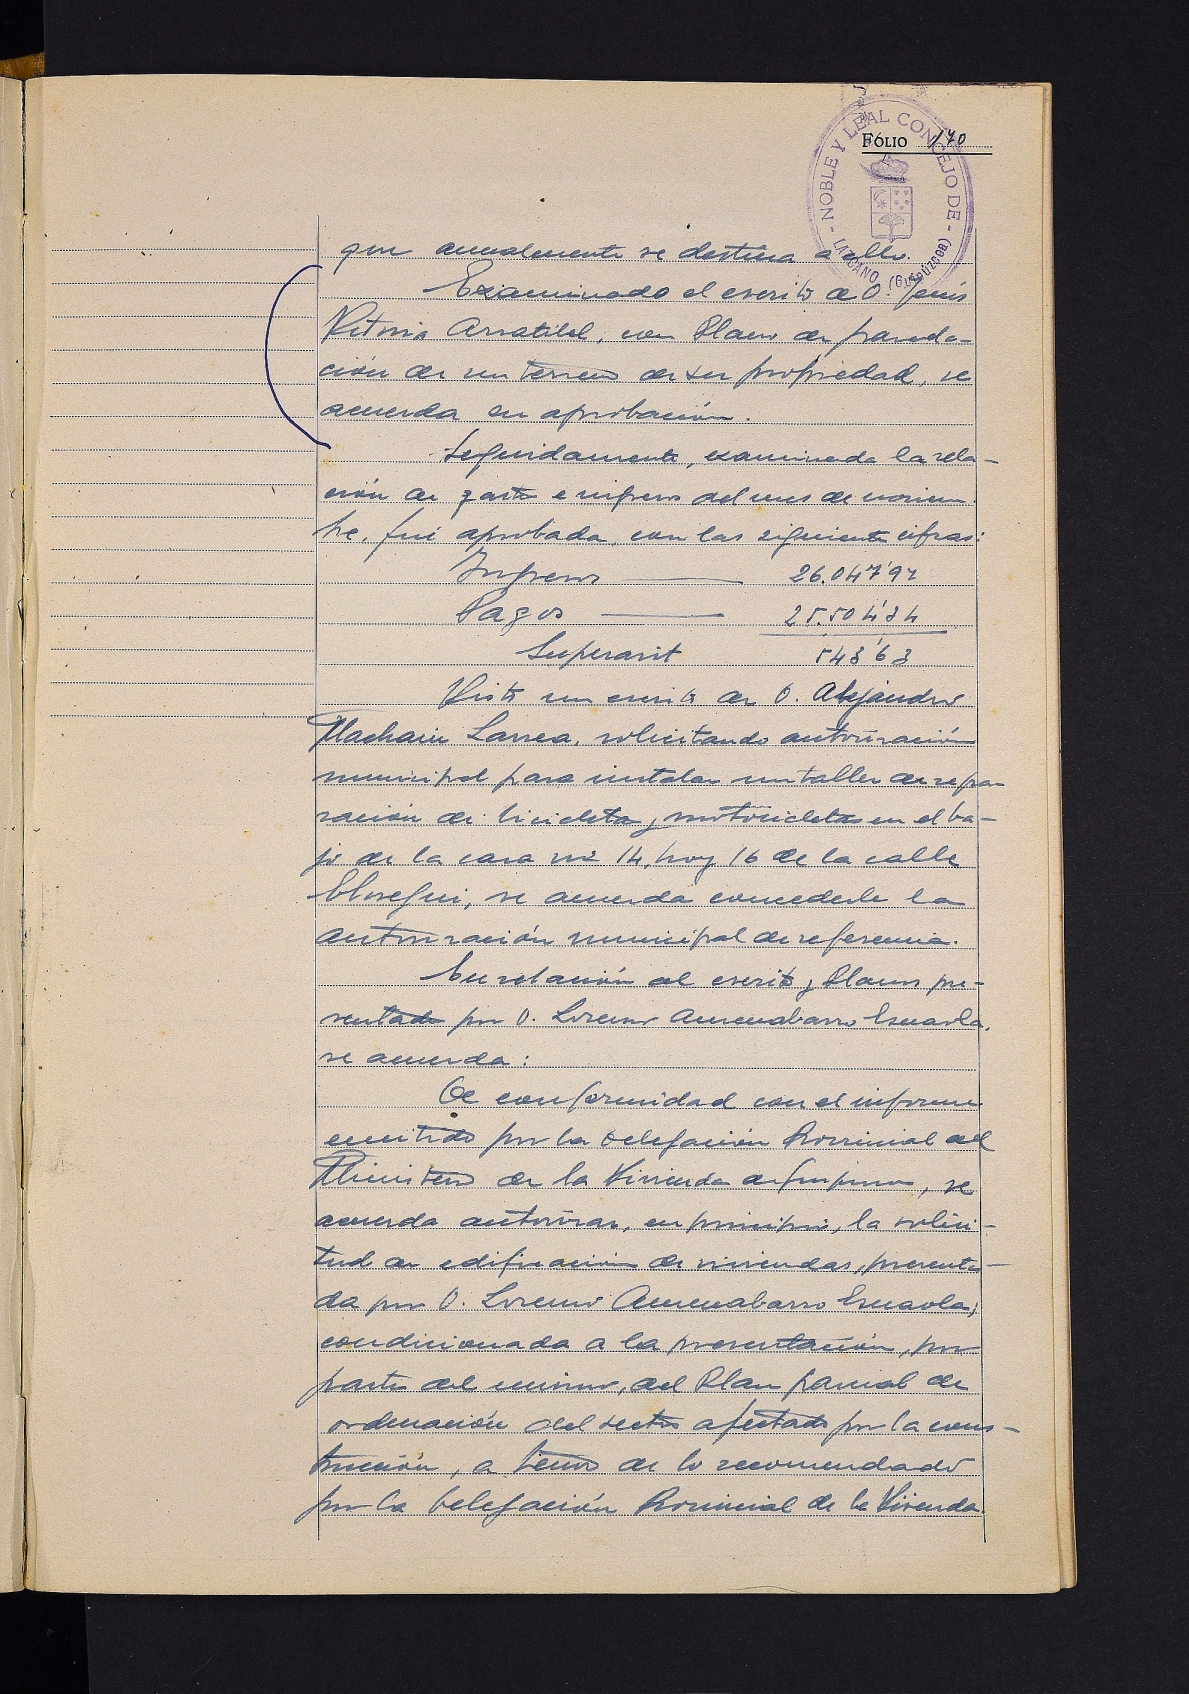 FÓLIO 170
- NOBLE Y LEAL CONCEJO DE - LAZCANO (GUIPÚZCOA)
que anualmente se destina a ello.
Examinado el escrito de D. Jesús
Vitoria Arratibel, con Plano de parcela-
ción de un terreno de su propiedad, se
acuerda su aprobación.
Seguidamente, examinada la rela-
ción de gastos e ingresos del mes de noviem-
bre, fué aprobada, con las siguientes cifras:
Ingresos 26.047'97
Pagos 25.504'34
Superavit 543'63
Visto un escrito de D. Alejandro
Machain Larrea, solicitando autorización
municipal para instalar un taller de repa-
ración de bicicletas y motocicletas en el ba-
jo de la casa nº 14, hoy 16 de la calle
Elosegui, se acuerda concederle la
autorización municipal de referencia.
En relación al escrito y Planos pre-
sentado por D. Lorenzo Aurrenabarro Esnaola,
se acuerda:
De conformidad con el informe
emitido por la Delegación Provincial del
Ministerio de la Vivienda de Guipuzcoa, se
acuerda autorizar, en principio, la solici-
tud de edificación de viviendas, presenta-
da por D. Lorenzo Aurrenabarro Esnaola,
condicionada a la presentación, por
parte del mismo, del Plan parcial de
ordenación del sector afectado por la cons-
trucción, a tenor de lo recomendado
por la Delegación Provincial de la Vivienda.